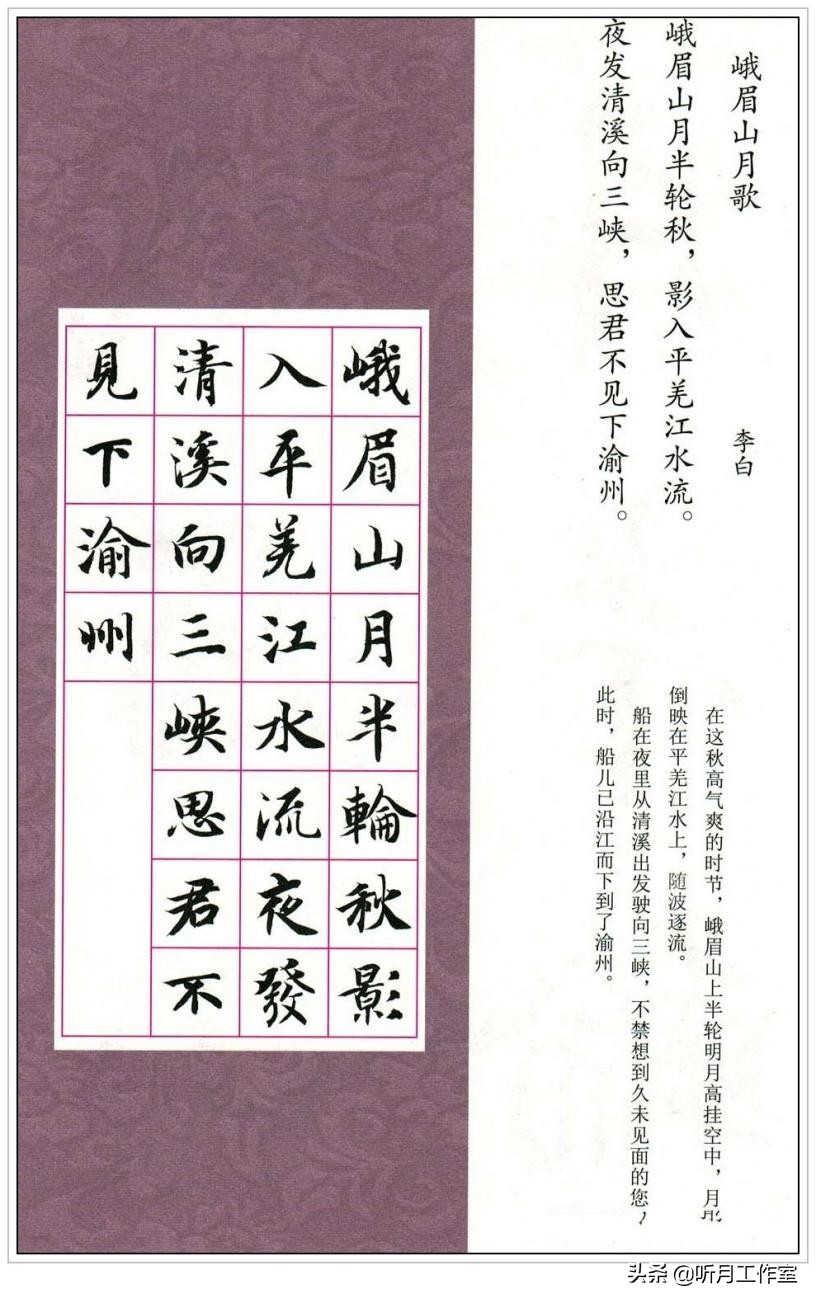 峨眉山月歌
李白
峨眉山月半轮秋，影入平羌江水流。
夜发清溪向三峡，思君不见下渝州。
在这秋高气爽的时节，峨眉山上半轮明月高挂空中，月影
倒映在平羌江水上，随波逐流。
船在夜里从清溪出发驶向三峡，不禁想到久未见面的您，
此时，船儿已沿江而下到了渝州。
峨眉山月半輪秋影
入平羌江水流夜發
清溪向三峽思君不
見下渝州
头条 @听月工作室